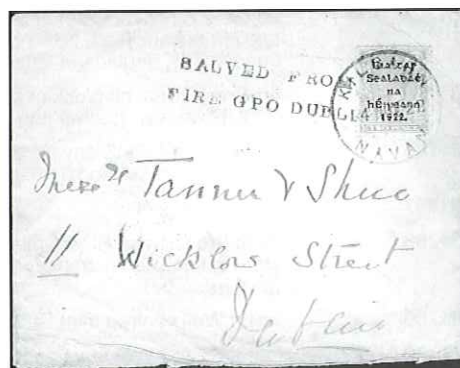 SALVED FROM
FIRE GPO DUBLIN
Rialtas
Sealadaċ
na
hÉireann
1922.
NAVA
Messrs Tanner &
11 Wicklow Street
Dublin